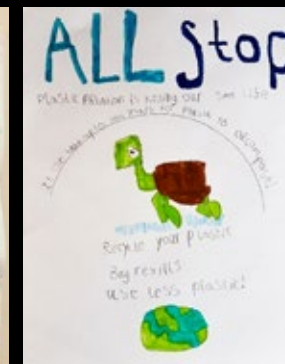 ALL Stop
Plastic Pollution is killing our sea life
plastic to decompose!
Recycle your plastic
Buy refills
use less plastic!